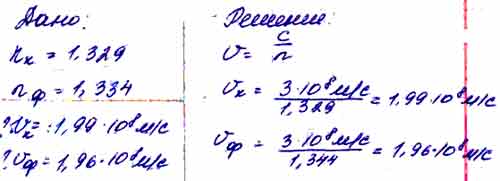 Дано:
nк = 1,329
nф = 1,334
? υк = : 1,99·10⁸ м/с
? υф = 1,96·10⁸ м/с
Решение:
υ = c/n
υк = 3·10⁸ м/с / 1,329 = 1,99·10⁸ м/с
υф = 3·10⁸ м/с / 1,344 = 1,96·10⁸ м/с